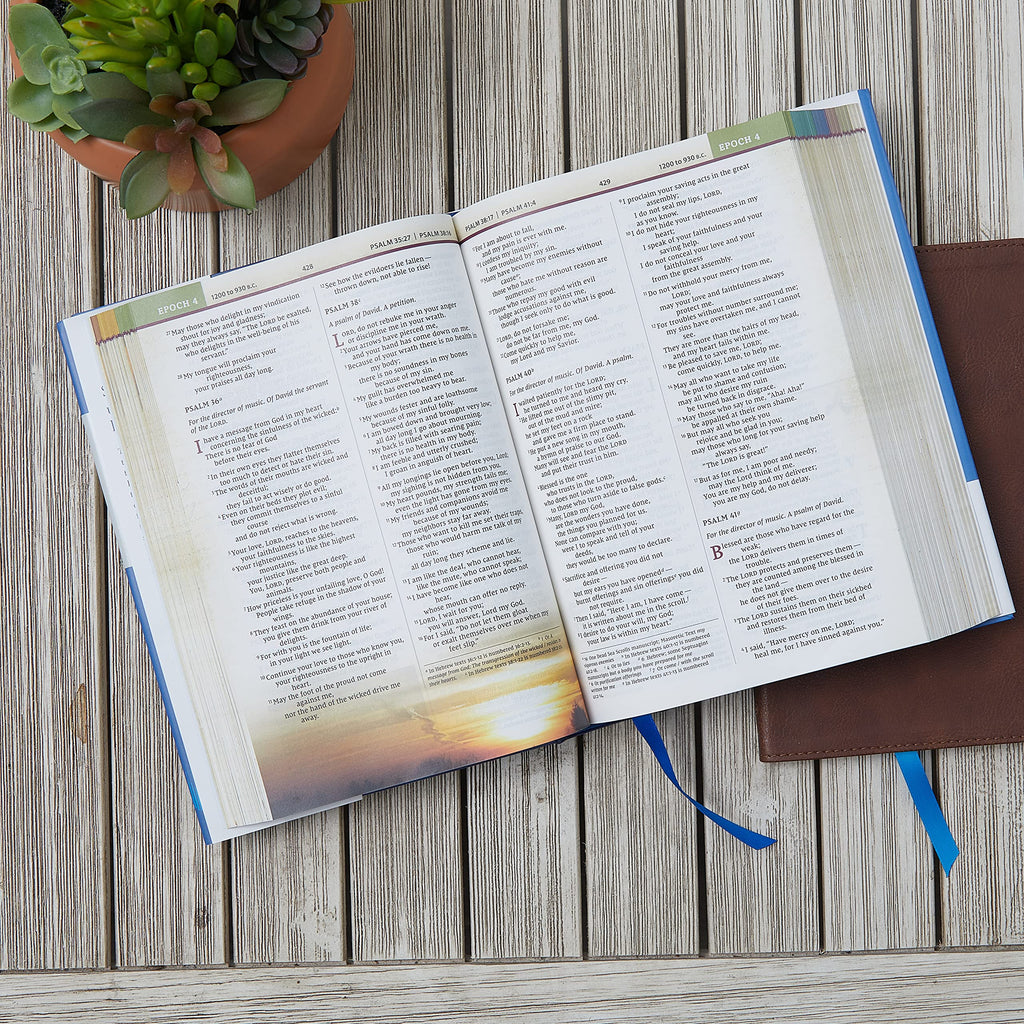 EPOCH 4
1200 to 930 B.C.
428
PSALM 35:27 | PSALM 38:16
27May those who delight in my vindication
shout for joy and gladness;
may they always say, “The LORD be exalted,
who delights in the well-being of his
servant.”
28My tongue will proclaim your
righteousness,
your praises all day long.
PSALM 36
For the director of music. Of David the servant
of the LORD.
I have a message from God in my heart
concerning the sinfulness of the wicked:
There is no fear of God
before their eyes.
2In their own eyes they flatter themselves
too much to detect or hate their sin.
3The words of their mouths are wicked and
deceitful;
they fail to act wisely or do good.
4Even on their beds they plot evil;
they commit themselves to a sinful
course
and do not reject what is wrong.
5Your love, LORD, reaches to the heavens,
your faithfulness to the skies.
6Your righteousness is like the highest
mountains,
your justice like the great deep.
You, LORD, preserve both people and
animals.
7How priceless is your unfailing love, O God!
People take refuge in the shadow of your
wings.
8They feast on the abundance of your house;
you give them drink from your river of
delights.
9For with you is the fountain of life;
in your light we see light.
10Continue your love to those who know you,
your righteousness to the upright in
heart.
11May the foot of the proud not come
against me,
nor the hand of the wicked drive me
away.
12See how the evildoers lie fallen—
thrown down, not able to rise!
PSALM 38
A psalm of David. A petition.
LORD, do not rebuke me in your anger
or discipline me in your wrath.
2Your arrows have pierced me,
and your hand has come down on me.
3Because of your wrath there is no health in
my body;
there is no soundness in my bones
because of my sin.
4My guilt has overwhelmed me
like a burden too heavy to bear.
5My wounds fester and are loathsome
because of my sinful folly.
6I am bowed down and brought very low;
all day long I go about mourning.
7My back is filled with searing pain;
there is no health in my body.
8I am feeble and utterly crushed;
I groan in anguish of heart.
9All my longings lie open before you, Lord;
my sighing is not hidden from you.
10My heart pounds, my strength fails me;
even the light has gone from my eyes.
11My friends and companions avoid me
because of my wounds;
my neighbors stay far away.
12Those who want to kill me set their traps,
those who would harm me talk of my
ruin;
all day long they scheme and lie.
13I am like the deaf, who cannot hear,
like the mute, who cannot speak;
14I have become like one who does not
hear,
whose mouth can offer no reply.
15LORD, I wait for you;
you will answer, Lord my God.
16For I said, “Do not let them gloat
or exalt themselves over me when my
feet slip.”
PSALM 38:17 | PSALM 41:4
429
1200 to 930 B.C.
EPOCH 4
17For I am about to fall,
and my pain is ever with me.
18I confess my iniquity;
I am troubled by my sin.
19Many have become my enemies without
cause;
those who hate me without reason are
numerous.
20Those who repay my good with evil
lodge accusations against me,
though I seek only to do what is good.
21LORD, do not forsake me;
do not be far from me, my God.
22Come quickly to help me,
my Lord and my Savior.
PSALM 40
For the director of music. Of David. A psalm.
I waited patiently for the LORD;
he turned to me and heard my cry.
2He lifted me out of the slimy pit,
out of the mud and mire;
he set my feet on a rock
and gave me a firm place to stand.
3He put a new song in my mouth,
a hymn of praise to our God.
Many will see and fear the LORD
and put their trust in him.
4Blessed is the one
who trusts in the LORD,
who does not look to the proud,
to those who turn aside to false gods.
5Many, LORD my God,
are the wonders you have done,
the things you planned for us.
None can compare with you;
were I to speak and tell of your
deeds,
they would be too many to declare.
6Sacrifice and offering you did not
desire—
but my ears you have opened—
burnt offerings and sin offerings you did
not require.
7Then I said, “Here I am, I have come—
it is written about me in the scroll.
8I desire to do your will, my God;
your law is within my heart.”
9I proclaim your saving acts in the great
assembly;
I do not seal my lips, LORD,
as you know.
10I do not hide your righteousness in my
heart;
I speak of your faithfulness and your
saving help.
I do not conceal your love and your
faithfulness
from the great assembly.
11Do not withhold your mercy from me,
LORD;
may your love and faithfulness always
protect me.
12For troubles without number surround me;
my sins have overtaken me, and I cannot
They are more than the hairs of my head,
and my heart fails within me.
13Be pleased to save me, LORD;
come quickly, LORD, to help me.
14May all who want to take my life
be put to shame and confusion;
may all who desire my ruin
be turned back in disgrace.
15May those who say to me, “Aha! Aha!”
be appalled at their own shame.
16But may all who seek you
rejoice and be glad in you;
may those who long for your saving help
always say,
“The LORD is great!”
17But as for me, I am poor and needy;
may the Lord think of me.
You are my help and my deliverer;
you are my God, do not delay.
PSALM 41
For the director of music. A psalm of David.
Blessed are those who have regard for the
weak;
the LORD delivers them in times of
2The LORD protects and preserves them—
they are counted among the blessed in
the land—
he does not give them over to the desire
of their foes.
3The LORD sustains them on their sickbed
and restores them from their bed of
illness.
4I said, “Have mercy on me, LORD;
heal me, for I have sinned against you.”